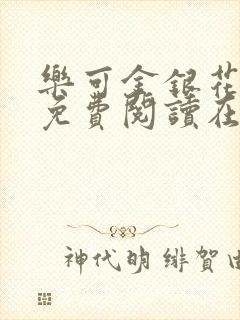 樂可金銀花
免費閱讀在
神代明 緋賀由